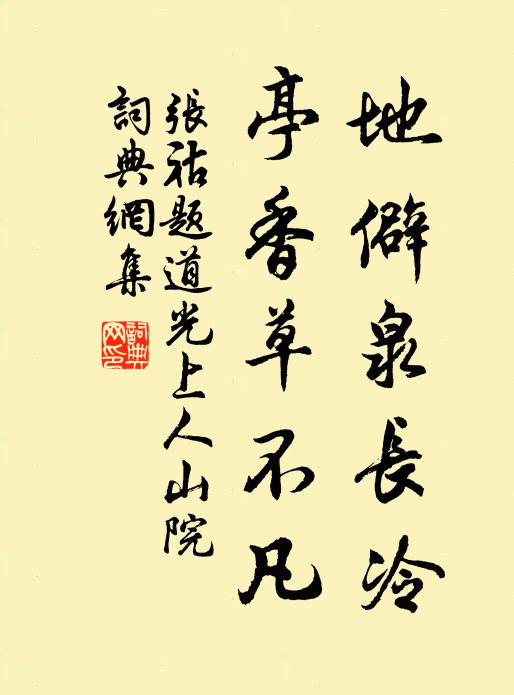 地僻泉長冷
亭香草不凡
張祜題道光上人山院
詞典網集
詞典網印